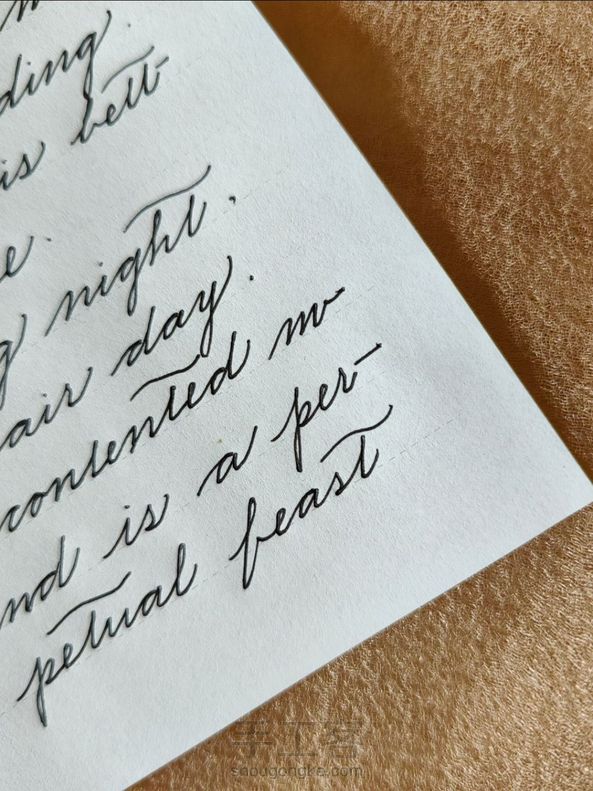 ding.
is bett-
e.
g night.
air day.
contented mi-
nd is a per-
petual feast
手工客
shougongke.com